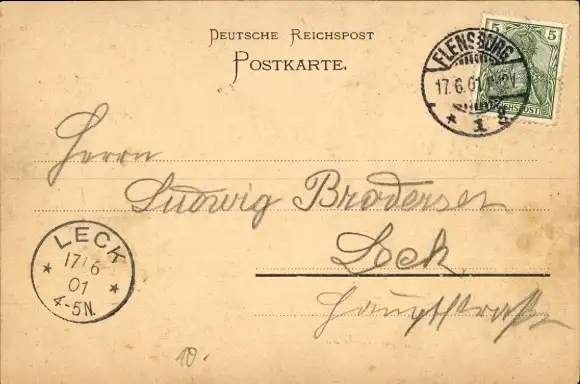 DEUTSCHE REICHSPOST
POSTKARTE.
5 5
REICHSPOST
FLENSBURG
17.6.01
* 1 g
Herrn
Ludwig Brodersen
Leck.
Hauptstraße
LECK
* 17/6 *
01
4-5N.
10.